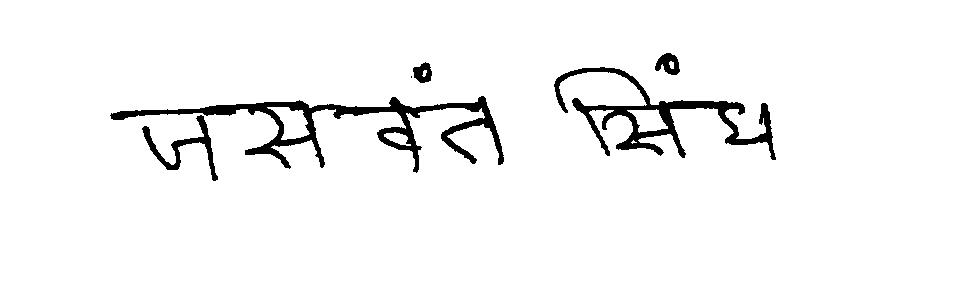 जसवंत सिंघ